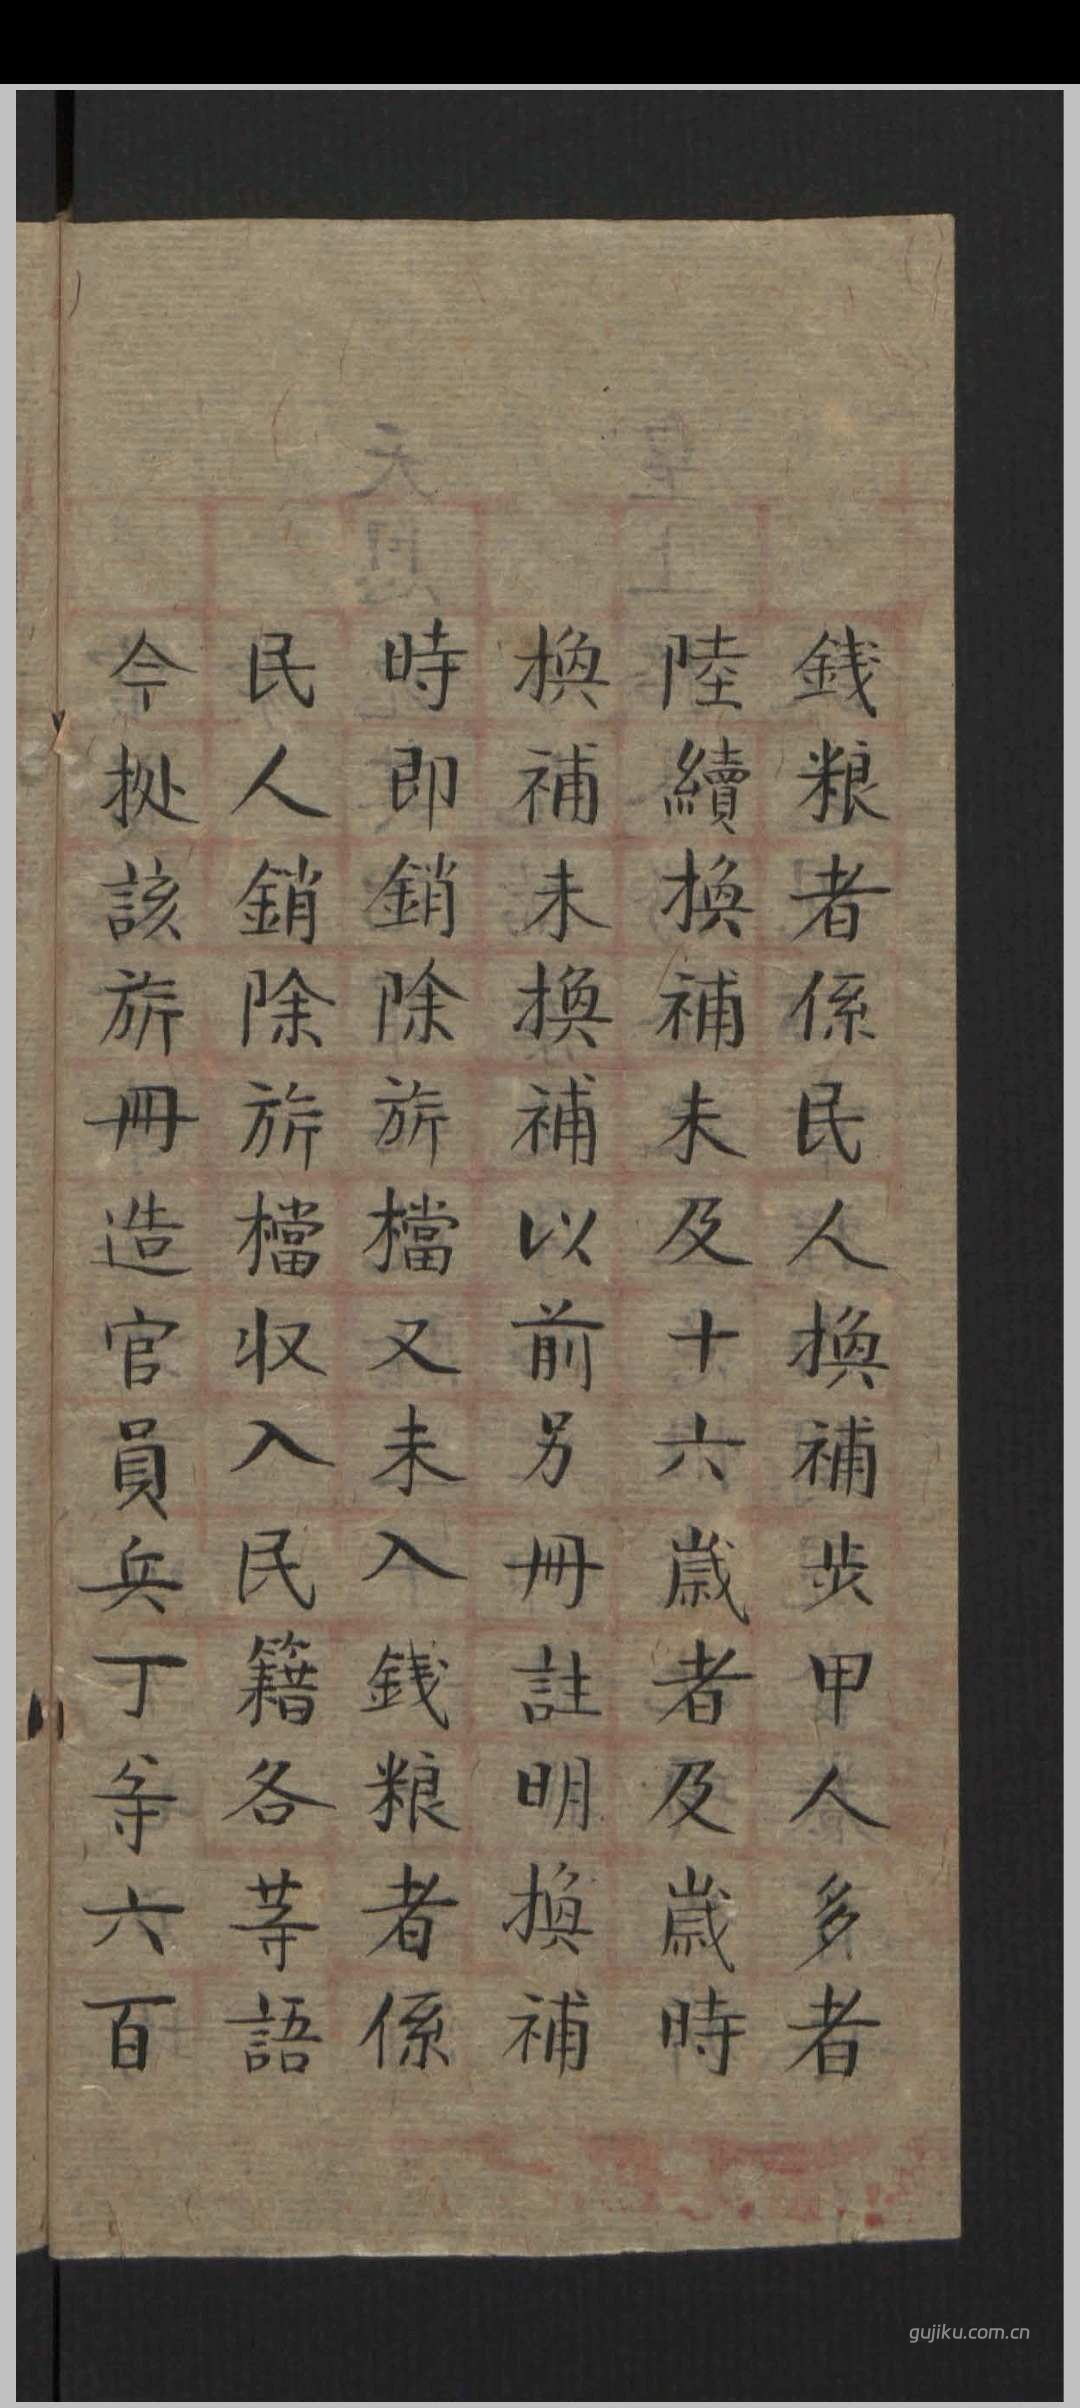 錢粮者係民人換補步甲人多者
陸續換補未及十六歲者及歲時
換補未換補以前另冊註明換補
時即銷除旂檔又未入錢粮者係
民人銷除旂檔收入民籍各等語
今拠該旂冊造官員兵丁等六百
gujiku.com.cn